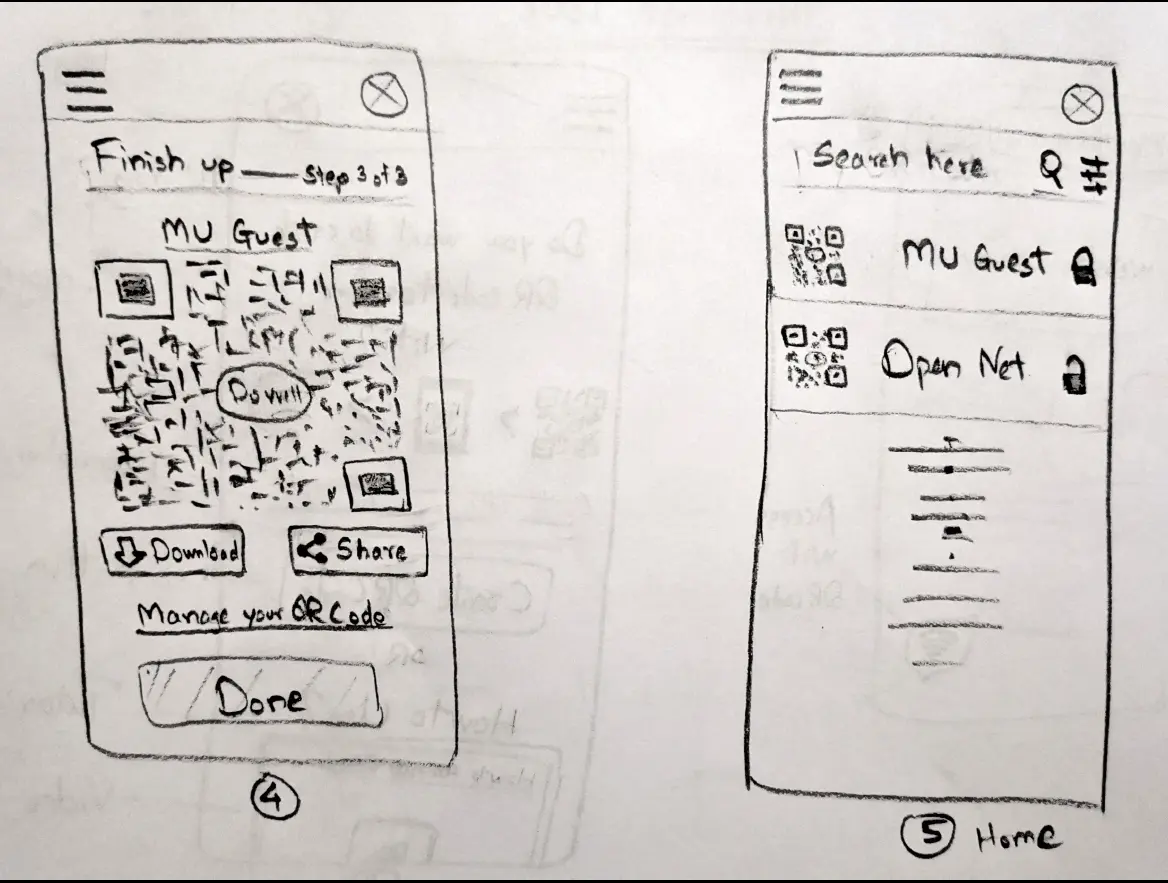 Finish up
Step 3 of 3
MU Guest
DoWill
Download
Share
Manage your QR Code
Done
4
Search here
MU Guest
Open Net
5 Home